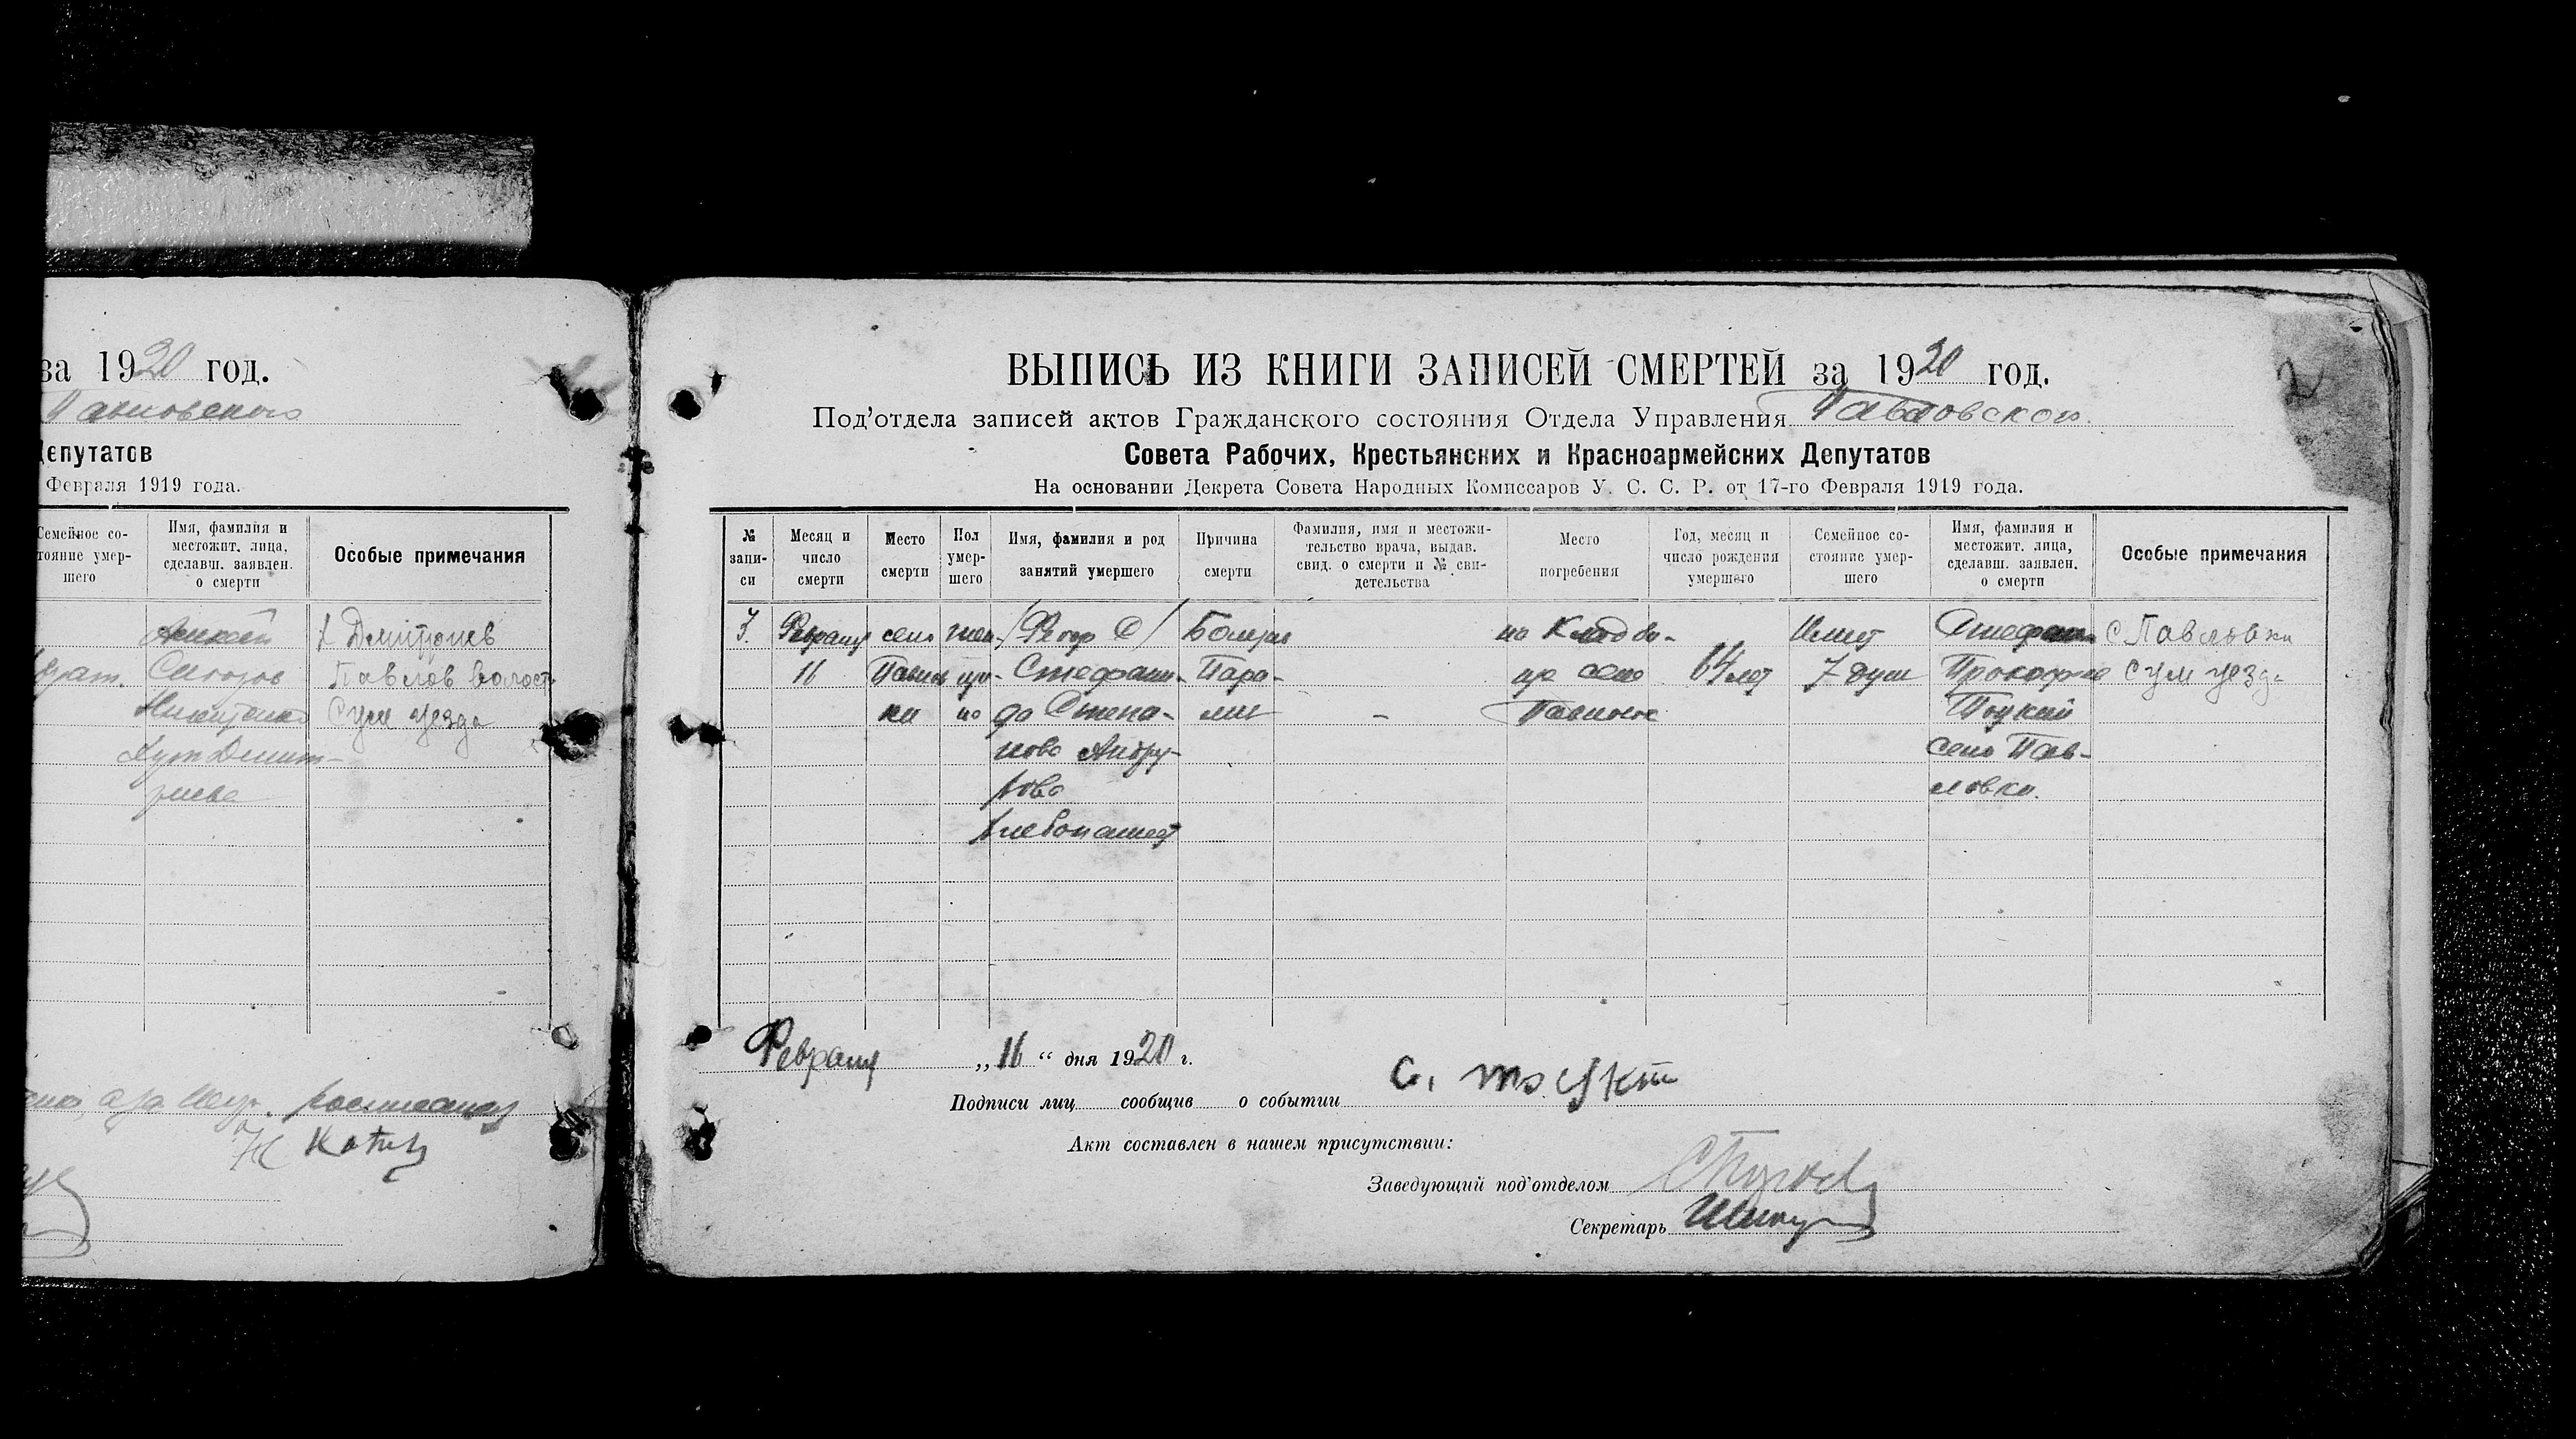 за 1920 год.
Павловского
Депутатов
Февраля 1919 года.
Семейное со-
тояние умер-
шего
Имя, фамилия и
местожит. лица,
сделавш. заявлен.
о смерти
Особые примечания
х Дмитриев
Павлов волост
Сум уезда
Никитенко
Хут Дмит-
риева
ВЫПИСЬ ИЗ КНИГИ ЗАПИСЕЙ СМЕРТЕЙ за 1920 год.
2
Под'отдела записей актов Гражданского состояния Отдела Управления Павловского
Совета Рабочих, Крестьянских и Красноармейских Депутатов
На основании Декрета Совета Народных Комиссаров У. С. С. Р. от 17-го Февраля 1919 года.
№
запи-
си
Месяц и
число
смерти
Место
смерти
Пол
умер-
шего
Имя, фамилия и род
занятий умершего
Причина
смерти
Фамилия, имя и местожи-
тельство врача, выдав.
свид. о смерти и № сви-
детельства
Место
погребения
Год, месяц и
число рождения
умершего
Семейное со-
стояние умер-
шего
Имя, фамилия и
местожит. лица,
сделавш. заявлен.
о смерти
Особые примечания
3.
Февраля
16
село
Павлов
ки
жен-
щи-
на
Стефани-
да Степа-
нова
хлебопашец
Пара-
лич
-
на Кладби-
ще село
Павловке
64 лет
Имеет
7 душ
Стефан
Прокофие
Тоцкий
село Пав-
ловки.
С Павловки
Сум уезда
Февраля „16“ дня 1920 г.
Подписи лиц сообщив о событии С.
Акт составлен в нашем присутствии:
Заведующий под'отделом
Секретарь